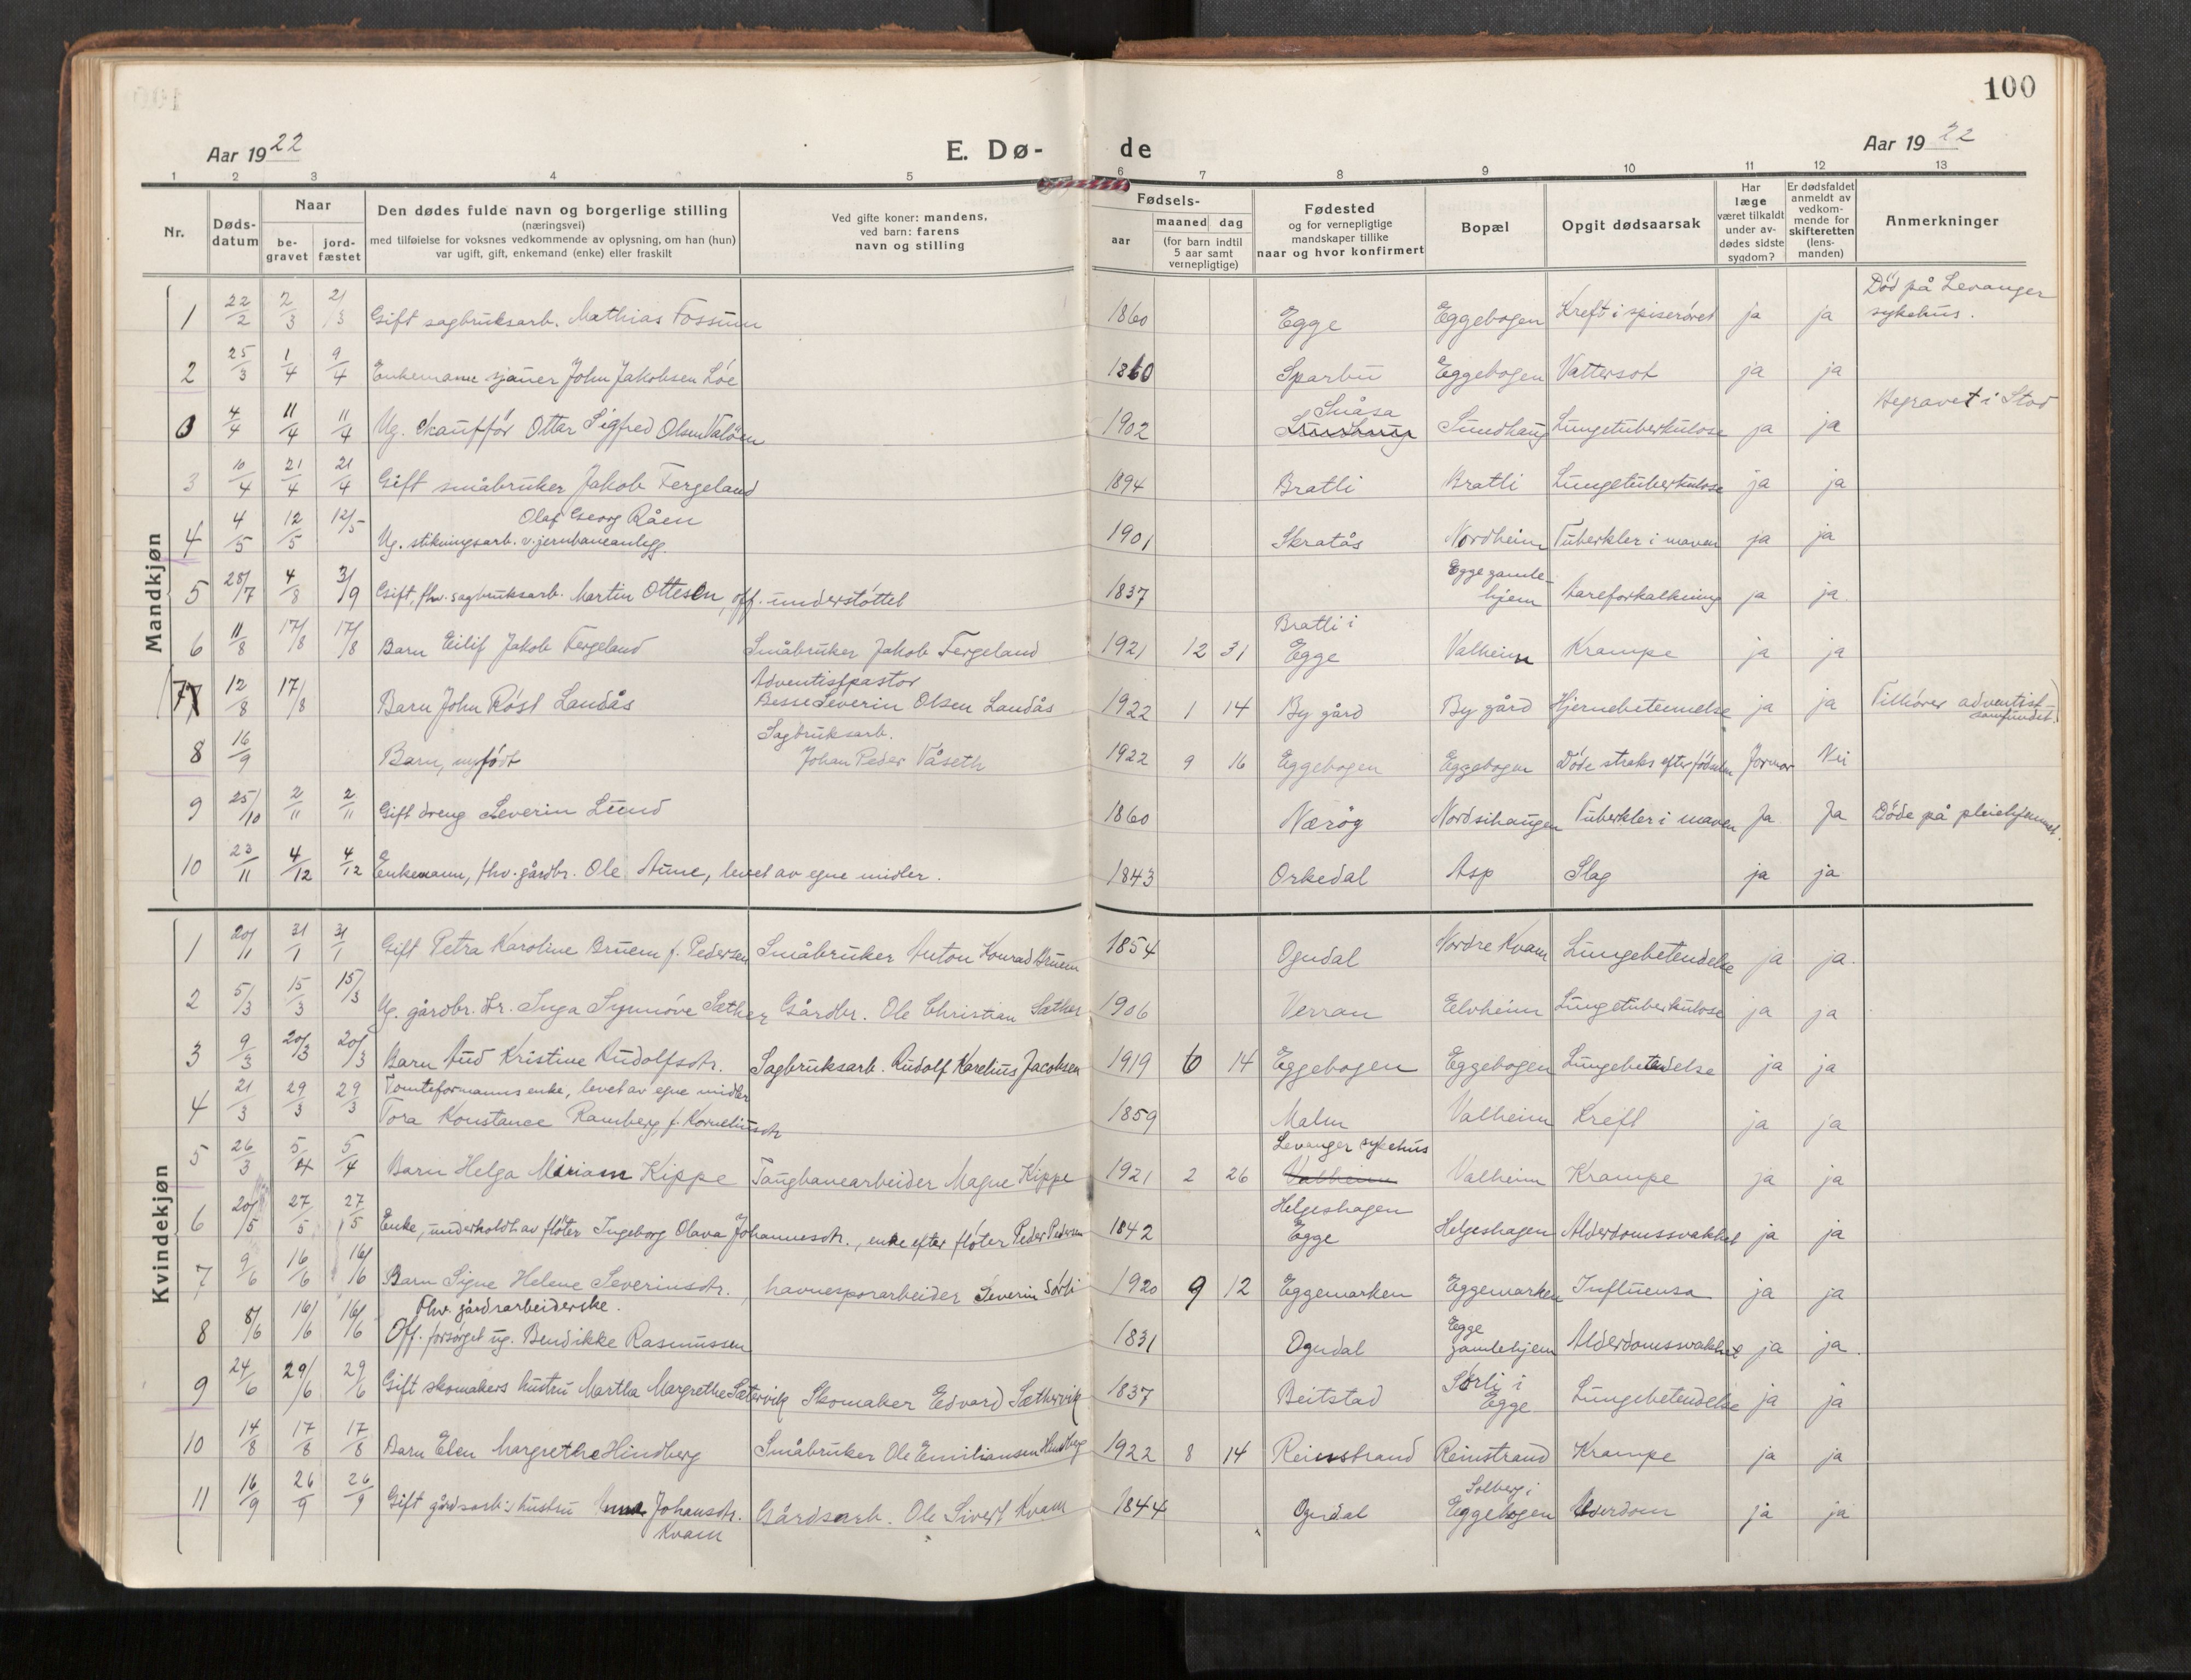 100
Aar 1922 E. Dø- de Aar 1922
1 2 3 4 5 6 7 8 9 10 11 12 13
Nr. Døds-datum Naar be-gravet jord-fæstet Den dødes fulde navn og borgerlige stilling (næringsvei) med tilføielse for voksnes vedkommende av oplysning, om han (hun) var ugift, gift, enkemand (enke) eller fraskilt Ved gifte koner: mandens, ved barn: farens navn og stilling Fødsels- aar maaned dag (for barn indtil 5 aar samt vernepligtige) Fødested og for vernepligtige mandskaper tillike naar og hvor konfirmert Bopæl Opgit dødsaarsak Har læge været tilkaldt under av-dødes sidste sygdom? Er dødsfaldet anmeldt av vedkom-mende for skifteretten (lens-manden) Anmerkninger
Mandkjøn
1 22/2 2/3 21/3 Gift sagbruksarb. Mathias Fossum 1860 Egge Eggebogen Kreft i spiserøret ja ja Död på Levanger sykehus.
2 25/3 1/4 9/4 Enkemann sjauer John Jakobsen Löe 1860 Sparbu Eggebogen Vattersot ja ja
0 4/4 11/4 11/4 Ug. chaufför Ottar Sigfred Olsen Valöen 1902 Snåsa Sundhaug Lungetuberkulose ja ja Begravet i Stod
3 10/4 21/4 21/4 Gift småbruker Jakob Fergeland 1894 Bratli Bratli Lungetuberkulose ja ja
4 4/5 12/5 12/5 Olaf Georg Råen
Ug. stikningsarb. v. jernbaneanlegg. 1901 Skratås Nordheim Tuberkler i maven ja ja
5 28/7 4/8 3/9 Gift, fhv. sagbruksarb. Martin Ottesen, off. understøttet 1837 Egge gamle-hjem Aareforkalkning ja ja
6 11/8 17/8 17/8 Barn Eilif Jakob Fergeland Småbruker Jakob Fergeland 1921 12 31 Bratli i Egge Valheim Krampe ja ja
7 12/8 17/8 Barn John Röst Landås Adventistpastor
Besse Severin Olsen Landås 1922 1 14 By gård By gård Hjernebetennelse ja ja Tilhører adventist-samfundet.
8 16/9 Barn, nyfödt Sagbruksarb.
Johan Peder Våseth 1922 9 16 Eggebogen Eggebogen Döde straks efter födselen Jormor Nei
9 25/10 2/11 2/11 Gift dreng Severin Lund 1860 Nærög Nordsihaugen Tuberkler i maven Ja Ja Döde på pleiehjemmet.
10 23/11 4/12 4/12 Enkemann, fhv. gårdbr. Ole Aune, levet av egne midler. 1843 Orkedal Asp Slag ja ja
Kvindekjøn
1 20/1 31/1 31/1 Gift Petra Karoline Bruem f. Pedersen Småbruker Anton Konrad Bruem 1854 Ogndal Nordre Kvam Lungebetendelse ja ja.
2 5/3 15/3 15/3 Ug. gårdbr. dr. Inga Synnöve Sæther Gårdbr. Ole Christian Sæther 1906 Verran Eelvheim Lungetuberkulose ja ja
3 9/3 20/3 20/3 Barn Aud Kristine Rudolfsdtr. Sagbruksarb. Rudolf Karelius Jacobsen 1919 6 14 Eggebogen Eggebogen Lungebetendelse ja ja
4 21/3 29/3 29/3 Tomteformanns enke, levet av egne midler
Tora Konstance Ramberg, f. Korneliusdtr 1859 Malm Valheim Kreft ja ja
5 26/3 5/4 5/4 Barn Helga Miriam Kippe Taugbanearbeider Magne Kippe 1921 2 26 Levanger sykehus Valheim Valheim Krampe ja ja
6 20/5 27/5 27/5 Enke, underholdt av flöter Ingeborg Olava Johannesdtr., enke efter flöter Peder Pedersen 1842 Helgeshagen Egge Helgeshagen Alderdomssvakhet ja ja
7 9/6 16/6 16/6 Barn Signe Helene Severinsdtr., havnesporarbeider Severin Sörli 1920 9 12 Eggemarken Eggemarken Influensa ja ja
8 8/6 16/6 16/6 Fhv. gårdsarbeiderske.
Off. forsörget ug. Bendikke Rasmussen 1831 Ogndal Egge gamlehjem Alderdomssvakhet ja ja.
9 24/6 29/6 29/6 Gift skomakers hustru Martha Margrethe Sætervik Skomaker Edvard Sæthervik 1837 Beitstad Sörli i Egge Lungebetendelse ja ja
10 14/8 17/8 17/8 Barn Elen Margrethe Hindberg Småbruker Ole Emiliansen Hindberg 1922 8 14 Reinsstrand Reinstrand Krampe ja ja
11 16/9 26/9 26/9 Gift gårdsarb.s hustru Johansdtr. Kvam Gårdsarb. Ole Sivert Kvam 1844 Ogndal Solberg i Eggebogen Alderdom ja ja